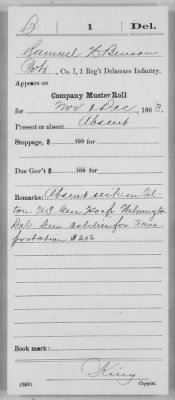 B | 1 | Del.
Samuel W Benson
Pvt, Co. I, 1 Reg't Delaware Infantry.
Appears on
Company Muster Roll
for Nov & Dec, 1863.
Present or absent Absent
Stoppage, $ 100 for
Due Gov't $ 100 for
Remarks: Absent sick in Til
ton U.S. Gen Hosp Wilmington
Del. Due soldier for
portation $2.02
Book mark:
King
(359) Copyist.